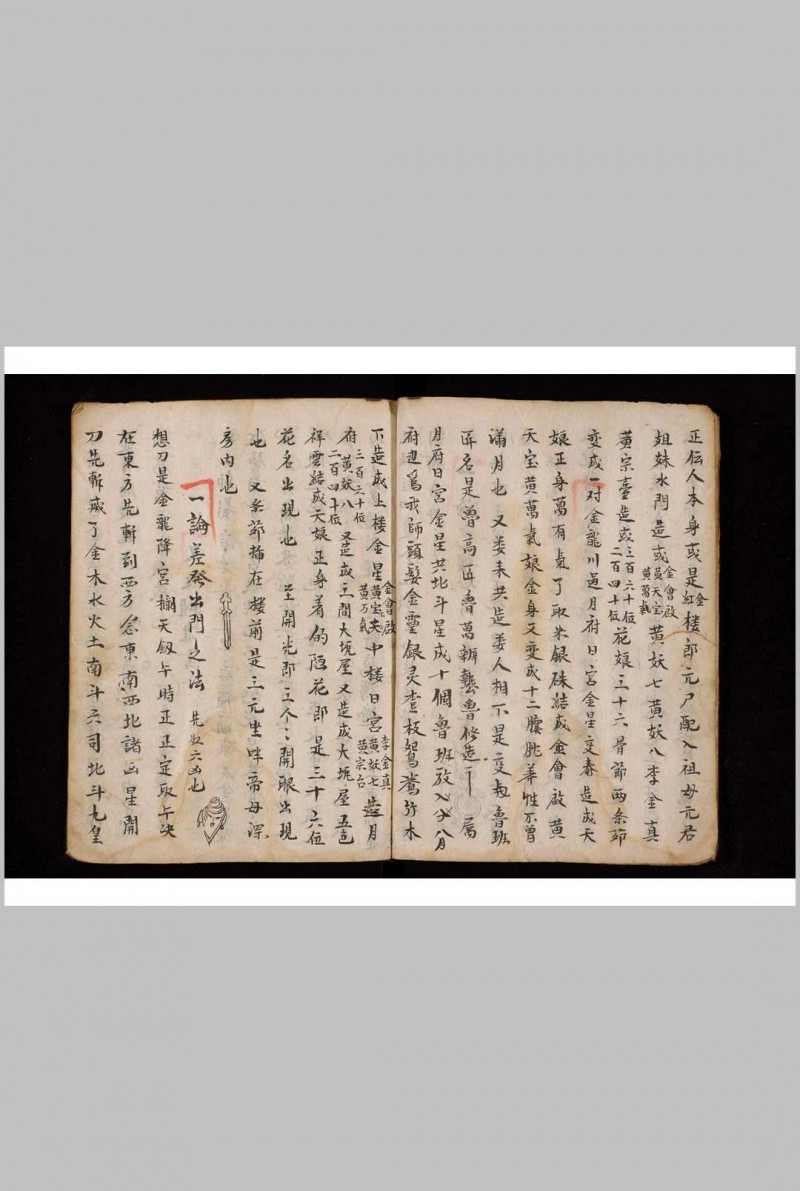 正伝人本身或是紅金樓郎元尸配入祖母元君
姐妹水門造或金會啟員天宝黄萬氣黄妖七黄妖八李金真
黄宗臺造或三百六十位二百四十位花娘三十六骨節両条茆
变成一对金龍川过月府日宮金星变春造成天
娘正身萬有氣了取米銀硃結成金會啟黄
天宝黄萬氣娘金身又变成十二臟肚華性不曾
滿月也又娄来共造娄人相不是变劫魯班
匠名是魯高匠魯萬辦藝魯修造二千属
月府日宮金星共北斗星成十個魯班放入分八月
府辺爲我師頭髮金靈銀灵查枝鴛鴦竹木
下造成上楼金星金會啟黄宝英黄万氣中楼日宮李金真黄妖七黄宗台造月
府黄妖八三百六十位二百四十位又造成三間大垗屋又造成大垗屋五色
祥雲結成天娘正身着的陌花郎是三十六位
花名出現也至開光郎三个〻開眼出現
也又条茆插在楼前是三元坐吽帝母深
房内也
一論差發出門之法先收六凶也
想刀是金龍降宮欄天釼午時正正定取午决
在東方先斬到西方念東南西北諸凶星開
刀先斬或了金木水火土南斗六司北斗九皇